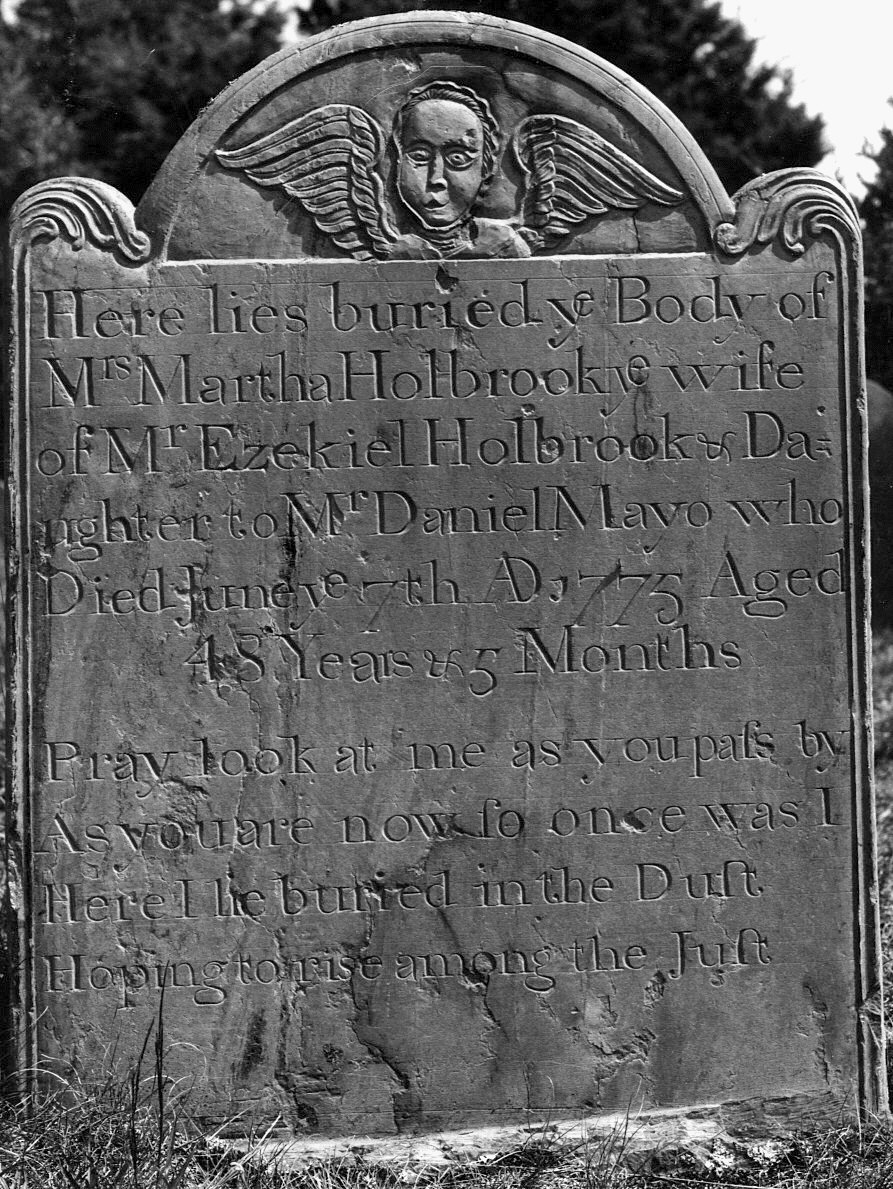 Here lies buried yᵉ Body of
Mʳˢ Martha Holbrook yᵉ wife
of Mʳ Ezekiel Holbrook & Da=
ughter to Mʳ Daniel Mayo who
Died June yᵉ 7th A D, 1773 Aged
48 Years & 5 Months
Pray look at me as you paſs by
As you are now ſo once was I
Here I lie buried in the Duſt
Hoping to rise among the Juſt